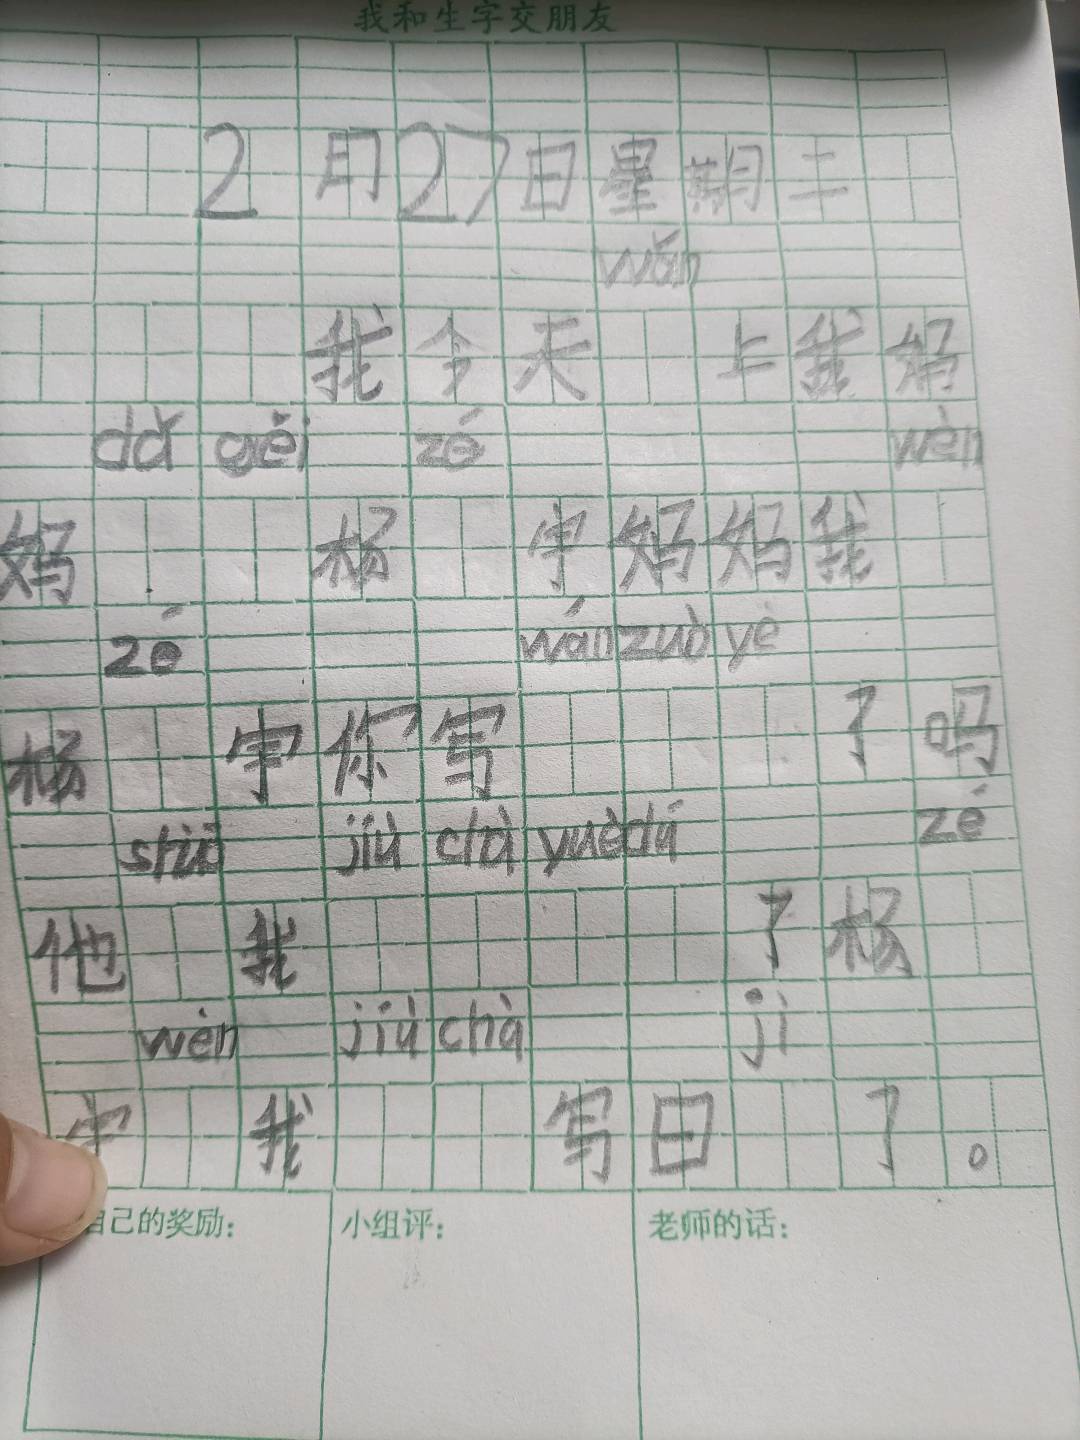 我和生字交朋友
2月27日星期二
wǎn
我今天 上我妈
dǎ gěi zé wèn
妈 杨 宇妈妈我
zé wán zuò yè
杨 宇你写 了吗
shuō jiù chà yuè dú zé
他 我 了杨
wèn jiù chà jì
宇 我 写日 了。
自己的奖励： 小组评： 老师的话：